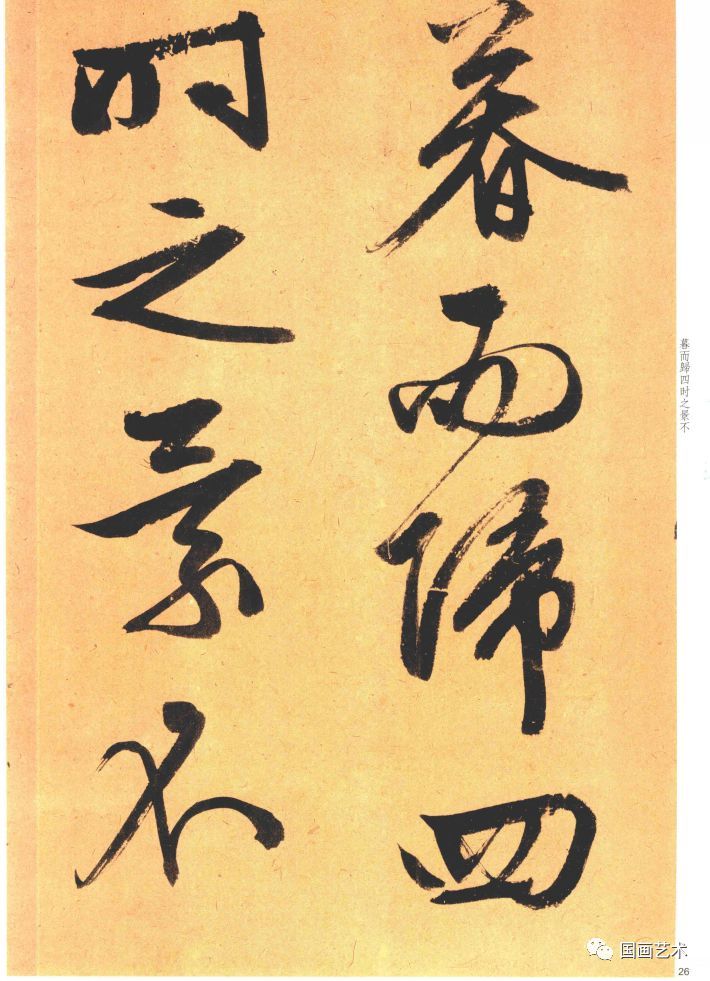 暮而歸四
时之景不
暮而歸四时之景不
国画艺术
26